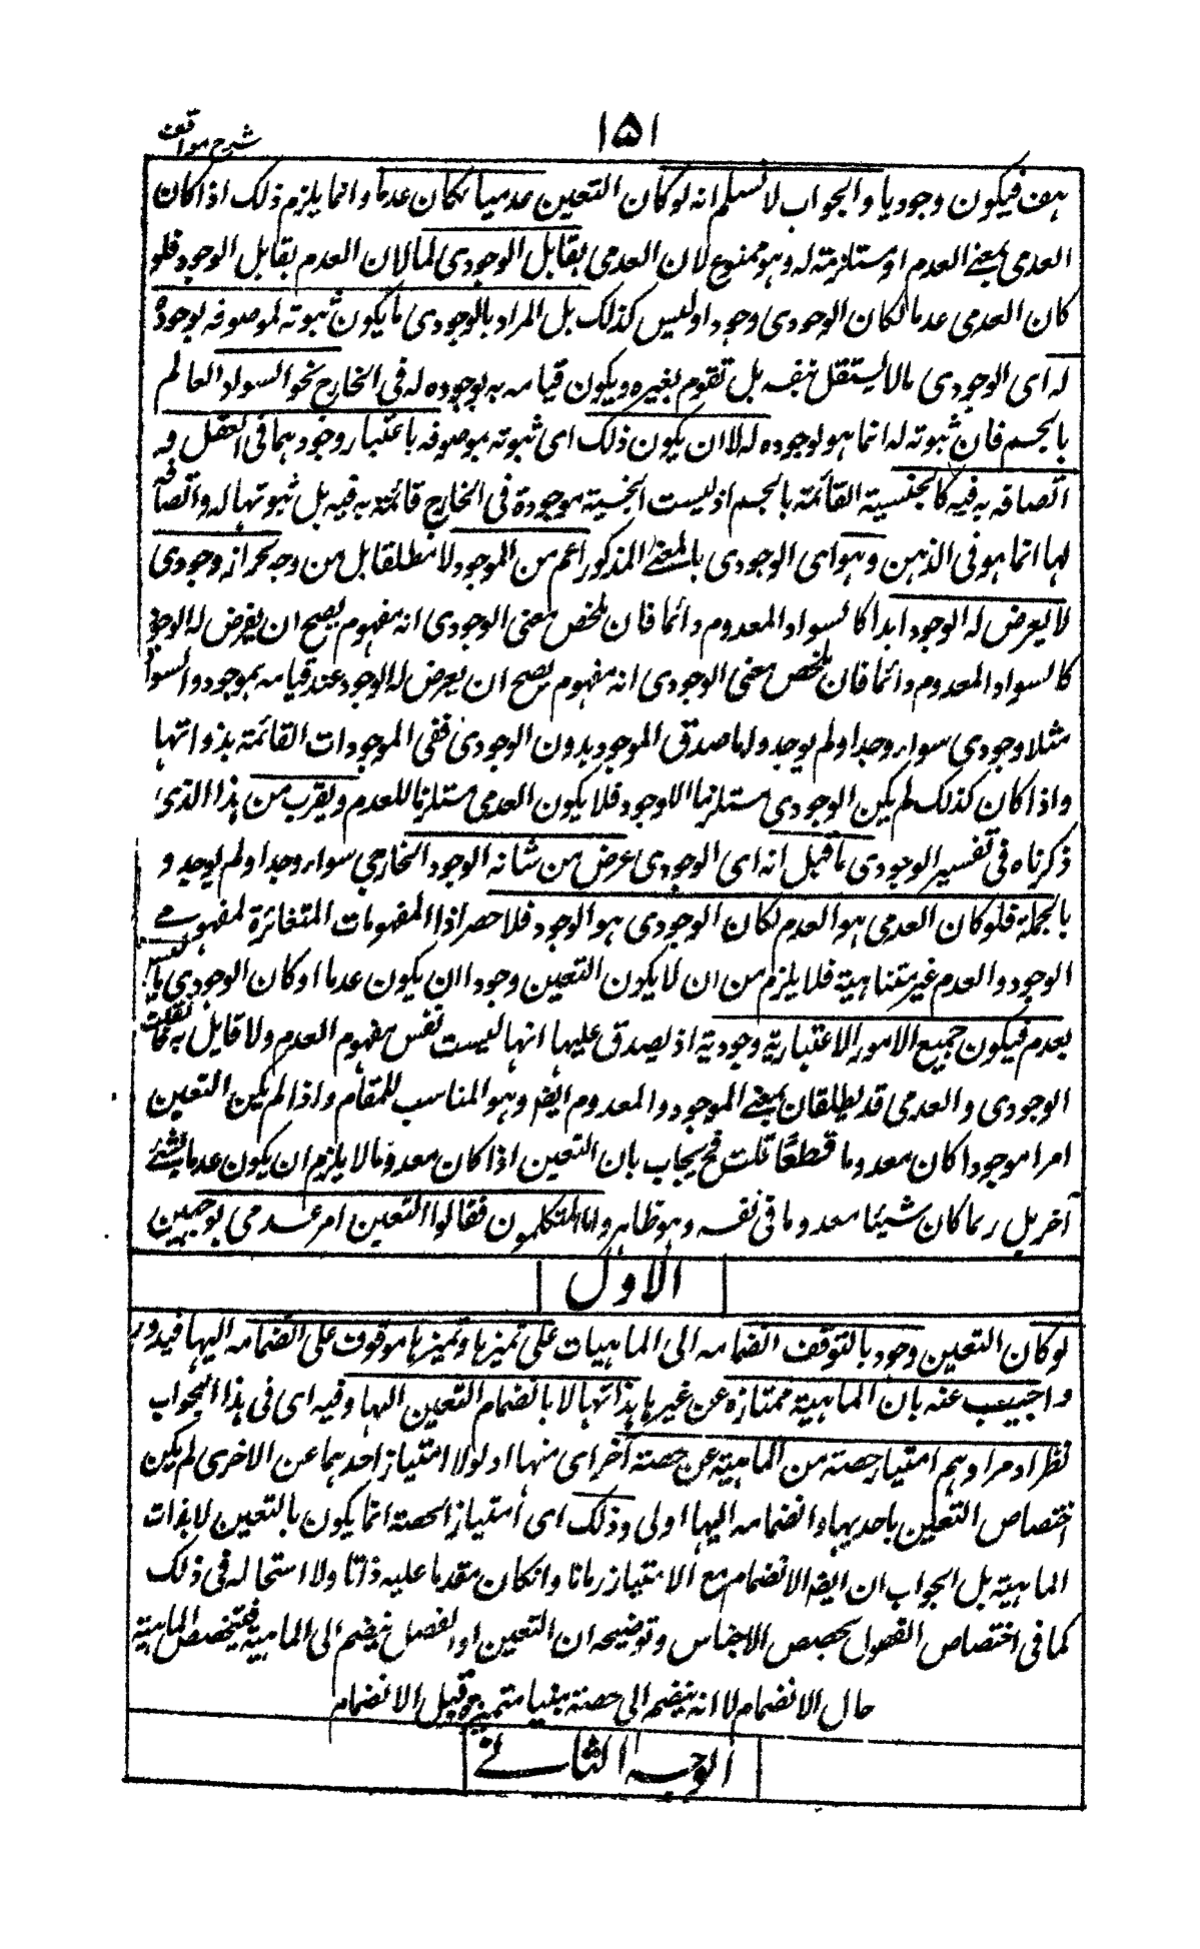 شرح مواقف
١٥١
هف فيكون وجوديا والجواب لا نسلم انه لو كان التعين عدميا لكان عدما وانما يلزم ذلك اذا كان
العدمى بمعنے العدم او مستلزمة له وهو ممنوع لان العدمى يقابل الوجودى لما لان العدم يقابل الوجود فلو
كان العدمى عدما لكان الوجودى وجودا وليس كذلك بل المراد بالوجودى ما يكون ثبوته لموصوفه بوجوده
له اى الوجودى مالا يستقل بنفسه بل تقوم بغيره ويكون قيامه به بوجوده له فى الخارج نحو السواد العالم
بالجسم فان ثبوته له انما هو لوجوده له لا ان يكون ذلك اى ثبوته بموصوفه باعتبار وجودهما فى العقل وبه
اتصافه به فيه كالجنسية القائمة بالجسم اذ ليست الجنسية موجودة فى الخارج قائمة به فيه بل ثبوتها له واتصافه
لها انما هو فى الذهن وهو اى الوجودى بالمعنے المذكور اعم من الموجود لا مطلقا بل من وجه لجواز وجودى
لا يعرض له الوجود ابدا كالسواد المعدوم دائما فان ملخص معنى الوجودى انه مفهوم يصح ان يعرض له الوجود
كالسواد المعدوم دائما فان ملخص معنى الوجودى انه مفهوم يصح ان يعرض له الوجود عند قيامه بموجود والسواد
مثلا وجودى سواء وجد او لم يوجد ولما صدق الموجود بدون الوجودى ففى الموجودات القائمة بذواتها
واذا كان كذلك لم يكن الوجودى مستلزما للوجود فلا يكون العدمى مستلزما للعدم ويقرب من هذا الذى
ذكرناه فى تفسير الوجودى ما قيل انه اى الوجودى عرض من شانه الوجود الخارجي سواء وجد او لم يوجد و
بالجملة فلو كان العدمى هو العدم لكان الوجودى هو الوجود فلا حصر اذ المفهومات المتغائرة لمفهومے
الوجود والعدم غير متناهية فلا يلزم من ان لا يكون التعين وجودا ان يكون عدما او كان الوجودى ما ليس
بعدم فيكون جميع الامور الاعتبارية وجودية اذ يصدق عليها انها ليست نفس مفهوم العدم ولا قايل به فان قلت
الوجودى والعدمى قد يطلقان بمعنے الموجود والمعدوم ايضا وهو المناسب للمقام واذا لم يكن التعين
امرا موجودا كان معدوما قطعًا قلت فح يجاب بان التعين اذا كان معدوما لا يلزم ان يكون عدما لشئ
آخر بل ربما كان شيئا معدوما فى نفسه وهو ظاهر واما المتكلمون فقالوا التعين امر عدمى بوجهين
الاول
لو كان التعين وجوديا لتوقف انضمامه الى الماهيات على تميزها وتميزها موقوف على انضمامه اليها فيدور
واجيب عنه بان الماهية ممتازة عن غيرها بذاتها لا بانضمام التعين اليها وفيه اى فى هذا الجواب
نظر اذ مرادهم امتياز حصته من الماهية عن حصته آخر اى منها اذ لولا امتياز احدهما عن الاخرى لم يكن
اختصاص التعين باحديهما وانضمامه اليها اولى وذلك اى امتياز الحصة انما يكون بالتعين لا بذات
الماهية بل الجواب ان ايضه الانضمام مع الامتياز زمانا وانكان مقدما عليه ذاتا ولا استحاله فى ذلك
كما فى اختصاص الفصول بحصص الاجناس وتوضيحه ان التعين او الفصل ينضم الى الماهية فيتخصص الماهية
حال الانضمام لا انه ينضم الى حصته منها متميزة قبل الانضمام
الوجه الثانے